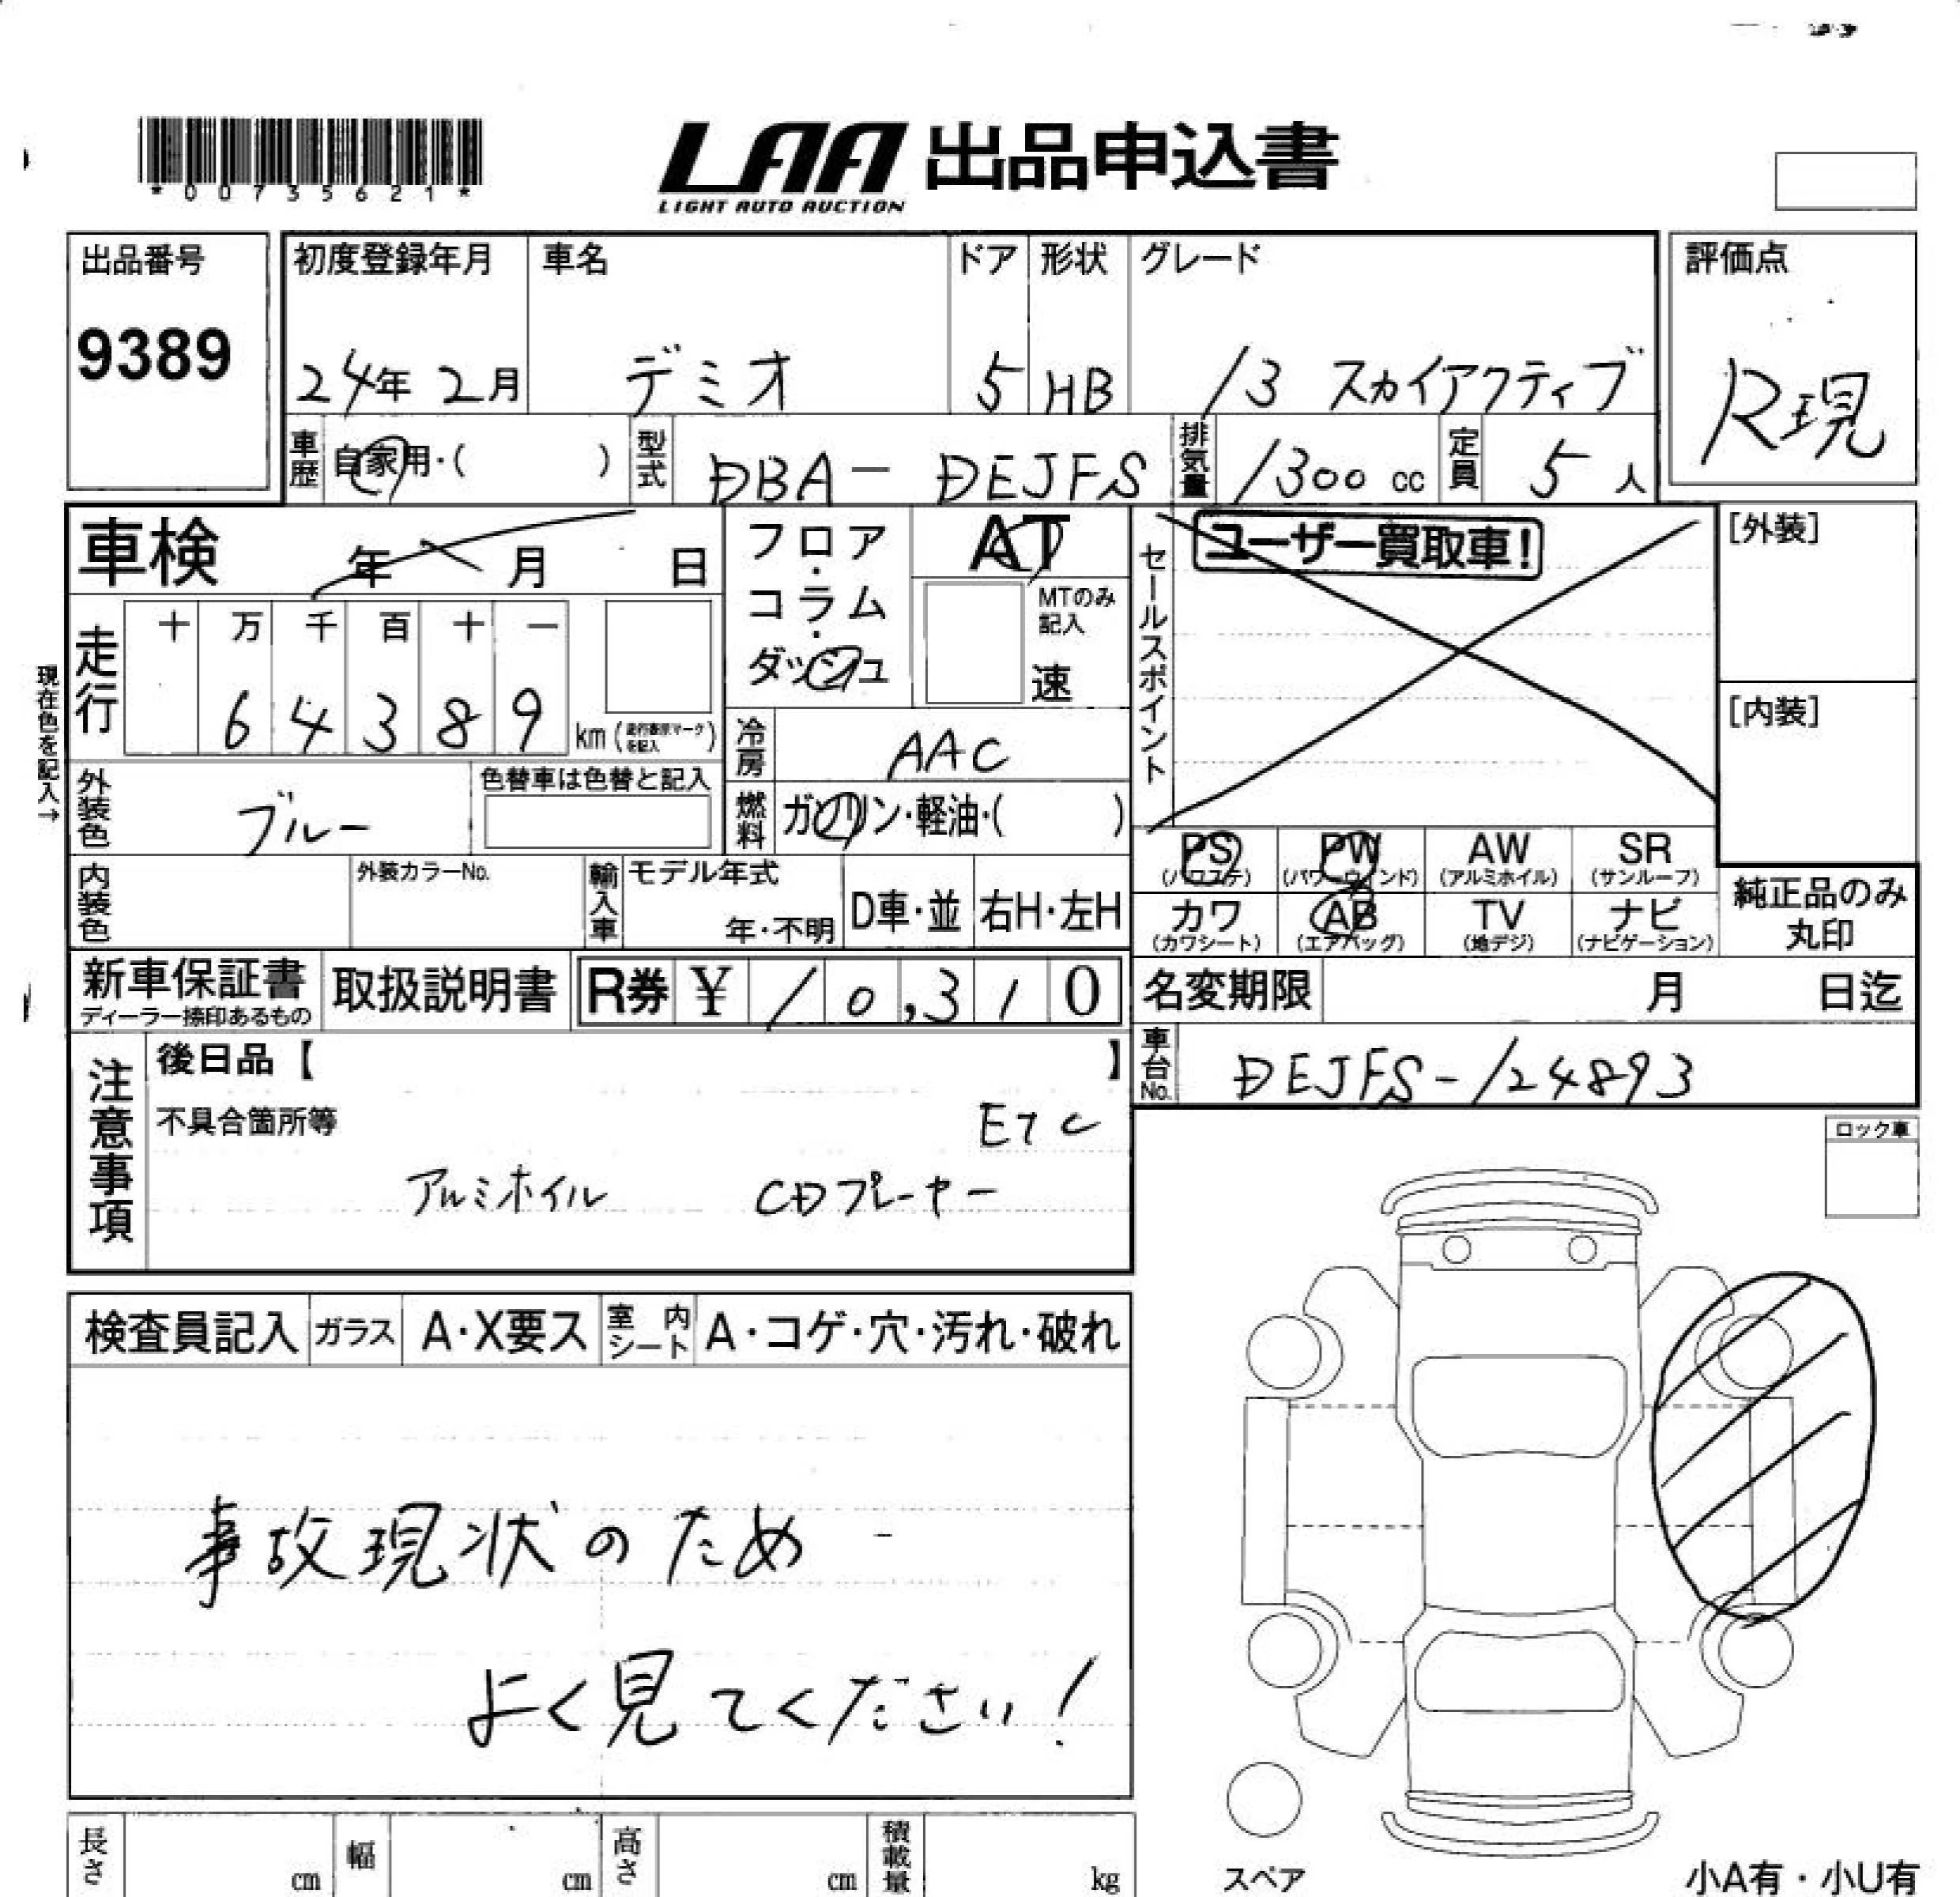 *00735621*
LAA 出品申込書
LIGHT AUTO AUCTION
出品番号
9389
初度登録年月 車名 ドア 形状 グレード
24年 2月 デミオ 5 HB 13 スカイアクティブ
評価点
R現
車歴 自家用・( ) 型式 DBA- DEJFS 排気量 1300 cc 定員 5 人
車検 年 月 日
フロア・コラム・ダッシュ
AT
MTのみ記入
速
セールスポイント
ユーザー買取車!
[外装]
[内装]
現在色を記入→
走行 十 万 千 百 十 一
6 4 3 8 9 km (走行表示マークを記入)
冷房 AAC
外装色 ブルー 色替車は色替と記入
燃料 ガソリン・軽油・( )
PS (パワステ) PW (パワーウィンド) AW (アルミホイル) SR (サンルーフ)
カワ (カワシート) AB (エアバッグ) TV (地デジ) ナビ (ナビゲーション)
純正品のみ丸印
内装色 外装カラーNo. 輸入車 モデル年式 年・不明 D車・並 右H・左H
新車保証書 ディーラー捺印あるもの 取扱説明書 R券 ¥ 10,310
名変期限 月 日迄
車台No. DEJFS-124893
注意事項
後日品【 】
不具合箇所等 ETC
アルミホイル CDプレーヤー
ロック車
検査員記入 ガラス A・X要ス 室内シート A・コゲ・穴・汚れ・破れ
事故現状のため
よく見てください!
長さ cm 幅 cm 高さ cm 積載量 kg
スペア
小A有・小U有